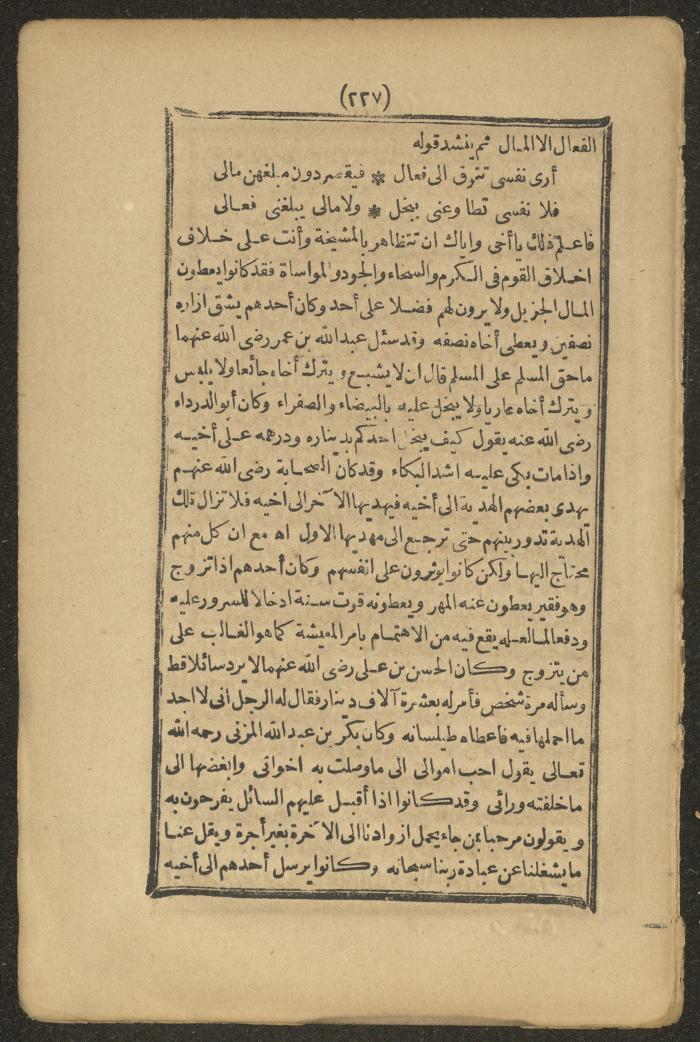 (٢٢٧)
الفعال الا المال ثم ينشد قوله
أرى نفسى تتوق الى فعال * فيقصر دون مبلغهن مالى
فلا نفسى تطاوعنى ببخل * ولا مالى يبلغنى فعالى
فاعلم ذلك يا أخى واياك ان تتظاهر بالمشيخة وأنت على خلاف
اخلاق القوم فى الكرم والسخاء والجود والمواساة فقد كانوا يعطون
المال الجزيل ولا يرون لهم فضلا على أحد وكان أحدهم يشق ازاره
نصفين ويعطى أخاه نصفه وقد سئل عبد الله بن عمر رضى الله عنهما
ما حق المسلم على المسلم قال ان لا يشبع ويترك أخاه جائعا ولا يلبس
ويترك أخاه عاريا ولا يبخل عليه بالبيضاء والصفراء وكان أبو الدرداء
رضى الله عنه يقول كيف يبخل احدكم بديناره ودرهمه على أخيه
واذا مات بكى عليه اشد البكاء وقد كان الصحابة رضى الله عنهم
يهدى بعضهم الهدية الى أخيه فيهديها الآخر الى اخيه فلا تزال تلك
الهدية تدور بينهم حتى ترجع الى مهديها الاول اه مع ان كل منهم
محتاج اليها ولكن كانوا يوثرون على انفسهم وكان أحدهم اذا تزوج
وهو فقير يعطون عنه المهر ويعطونه قوت سنة ادخالا للسرور عليه
ودفعا لما لعله يقع فيه من الاهتمام بامر المعيشة كما هو الغالب على
من يتزوج وكان الحسن بن على رضى الله عنهما لا يرد سائلا قط
وسأله مرة شخص فأمر له بعشرة آلاف دينار فقال له الرجل انى لا اجد
ما احملها فيه فاعطاه طيلسانه وكان بكر بن عبد الله المزنى رحمه الله
تعالى يقول احب اموالى الى ما وصلت به اخوانى وابغضها الى
ما خلفته ورائى وقد كانوا اذا أقبل عليهم السائل يفرحون به
ويقولون مرحبا بمن جاء يحمل ازوادنا الى الآخرة بغير أجرة ويقل عنا
ما يشغلنا عن عبادة ربنا سبحانه وكانوا يرسل أحدهم الى أخيه